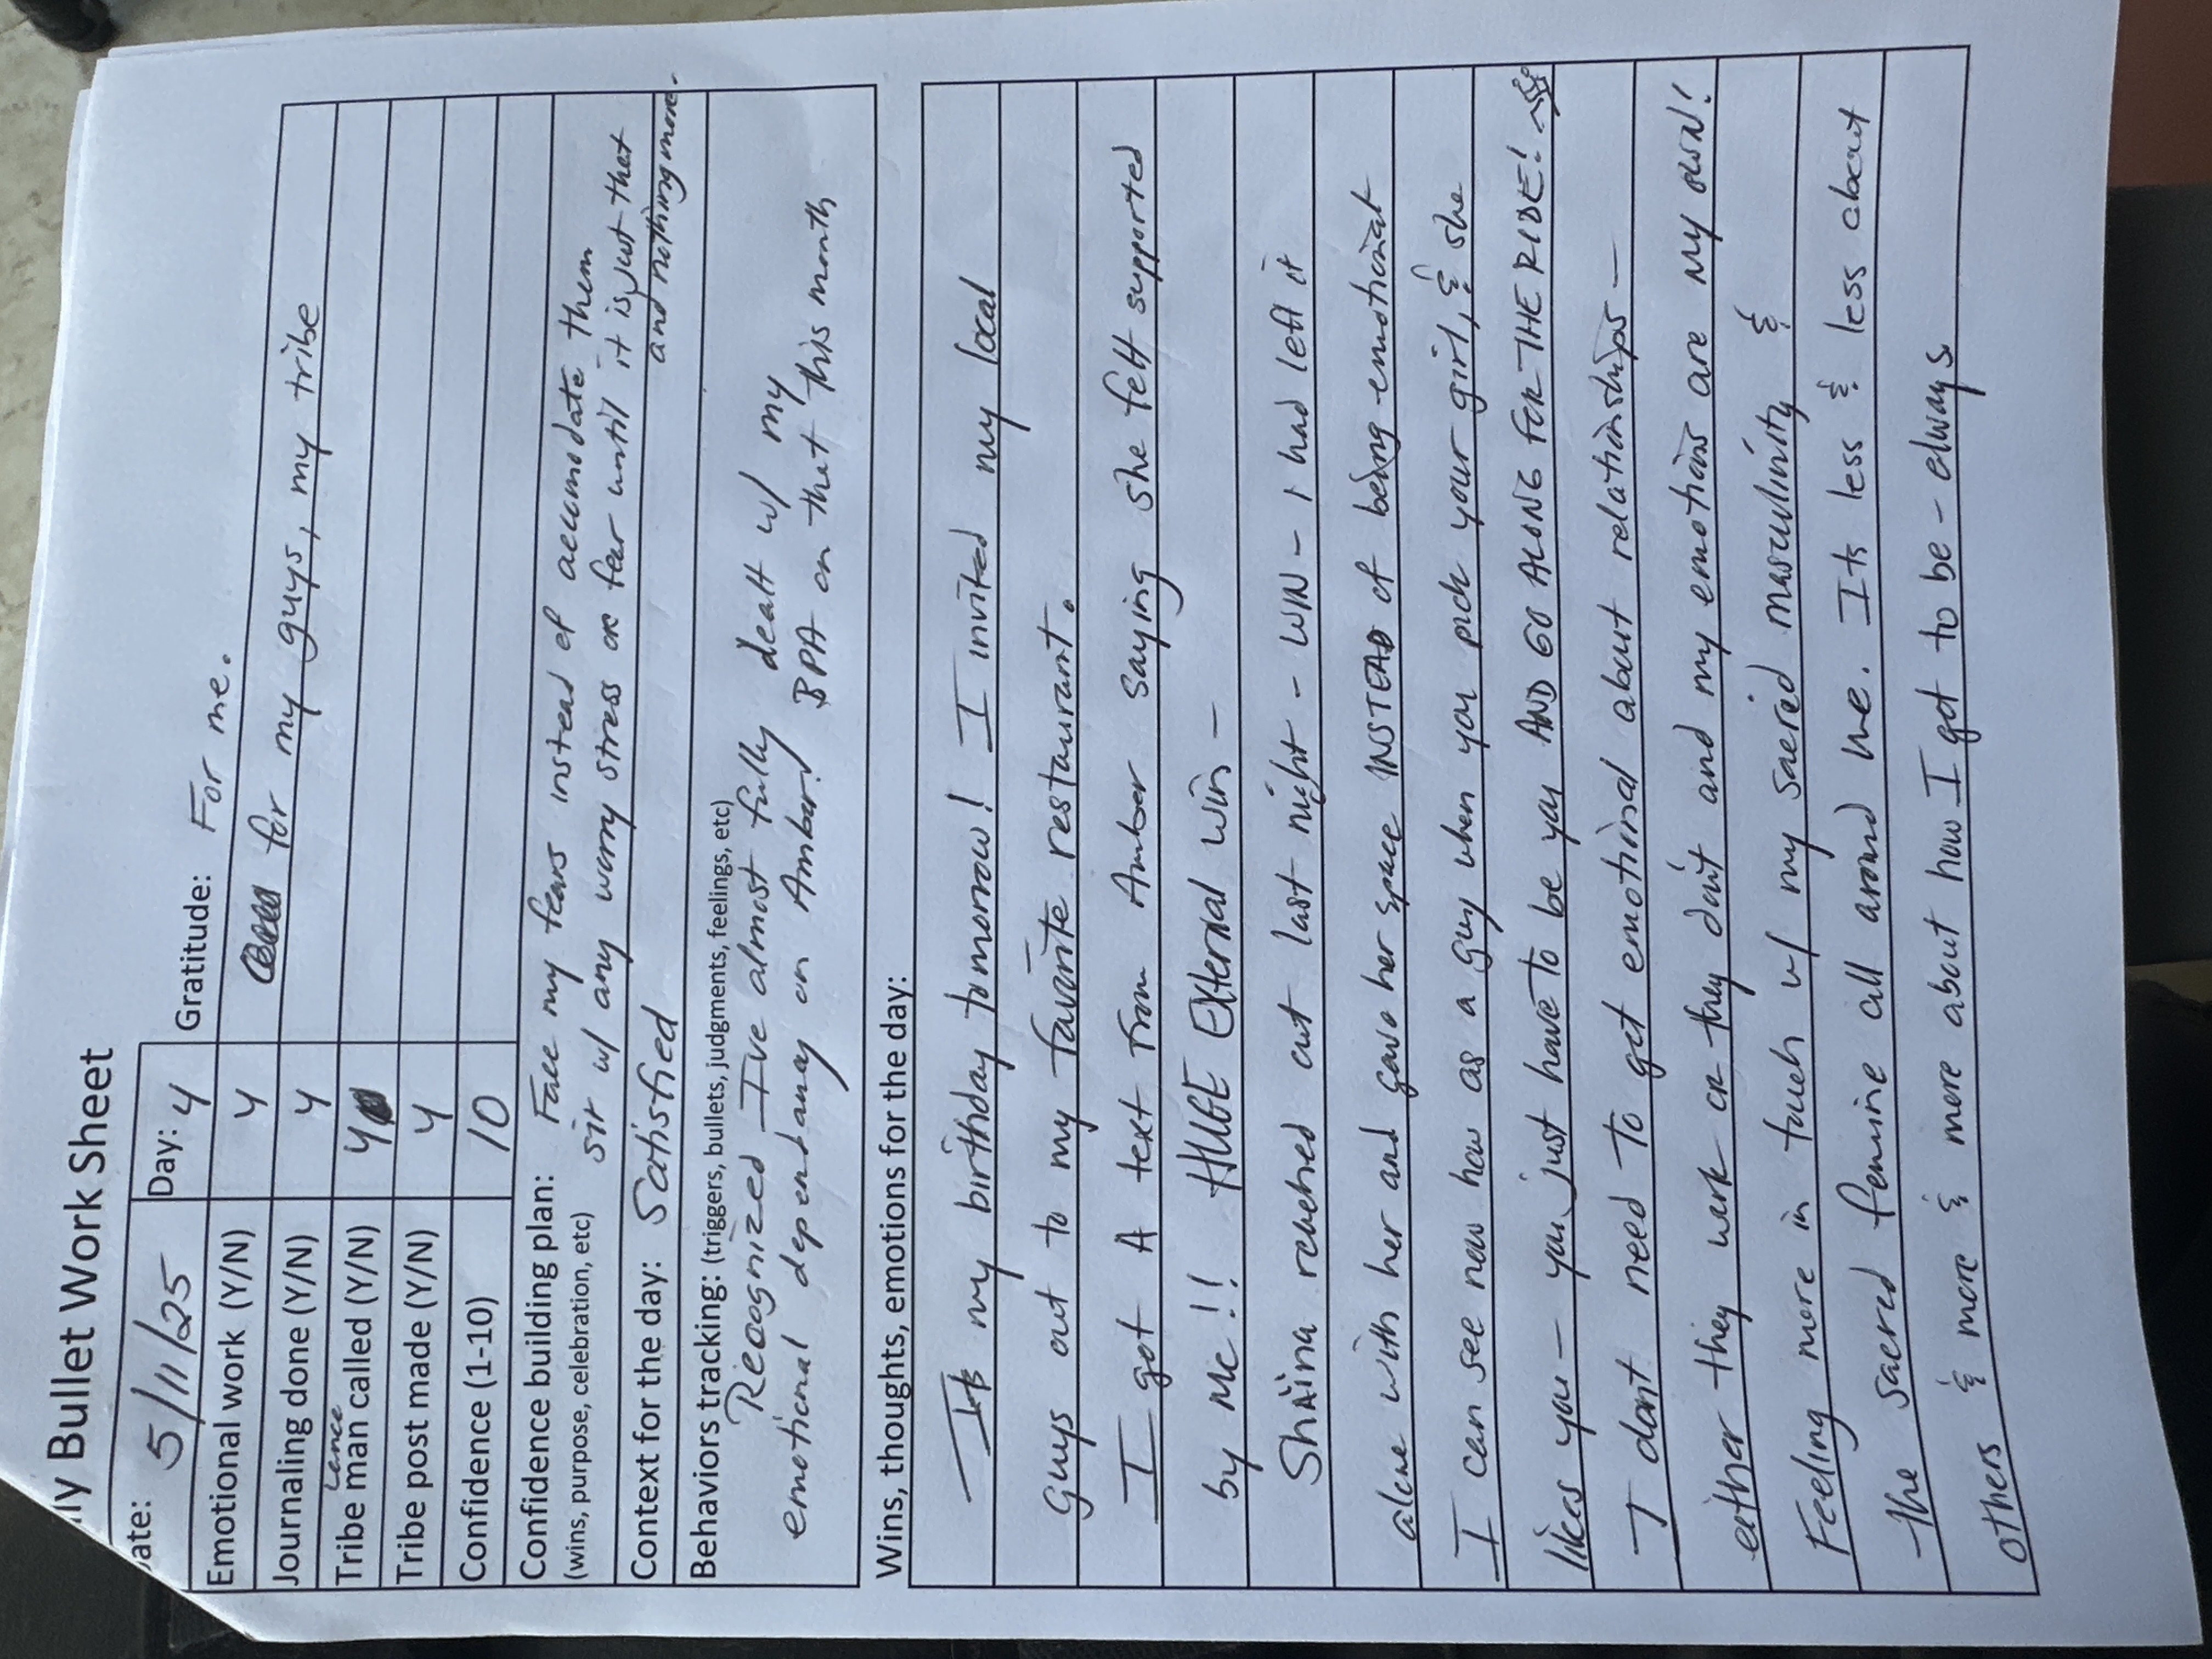 ly Bullet Work Sheet
ate: 5/11/25 Day: 4 Gratitude: For me.
Emotional work (Y/N) Y for my guys, my tribe
Journaling done (Y/N) Y
Lance
Tribe man called (Y/N) Y
Tribe post made (Y/N) Y
Confidence (1-10) 10
Confidence building plan: Face my fears instead of accomodate them
(wins, purpose, celebration, etc) sit w/ any worry stress or fear until it is just that
and nothing more.
Context for the day: Satisfied
Behaviors tracking: (triggers, bullets, judgments, feelings, etc)
Recognized I've almost fully dealt w/ my
emotional dependancy on Amber! BPA on that this month
Wins, thoughts, emotions for the day:
- Its my birthday tomorrow! I invited my local
guys out to my favorite restaurant.
I got A text from Amber saying she felt supported
by me!! HUGE External win -
Shaina reached out last night - WIN - I had left it
alone with her and gave her space INSTEAD of being emotional
I can see now how as a guy when you pick your girl, & she
likes you - you just have to be you AND GO ALONG FOR THE RIDE!
I dont need to get emotional about relationships -
either they work or they don't and my emotions are my own!
Feeling more in touch w/ my sacred masculinity &
the sacred femine all around me. Its less & less about
others & more & more about how I got to be - always